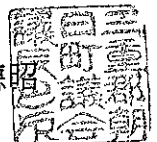 昭
三重郡朝
日町議会
議長之印